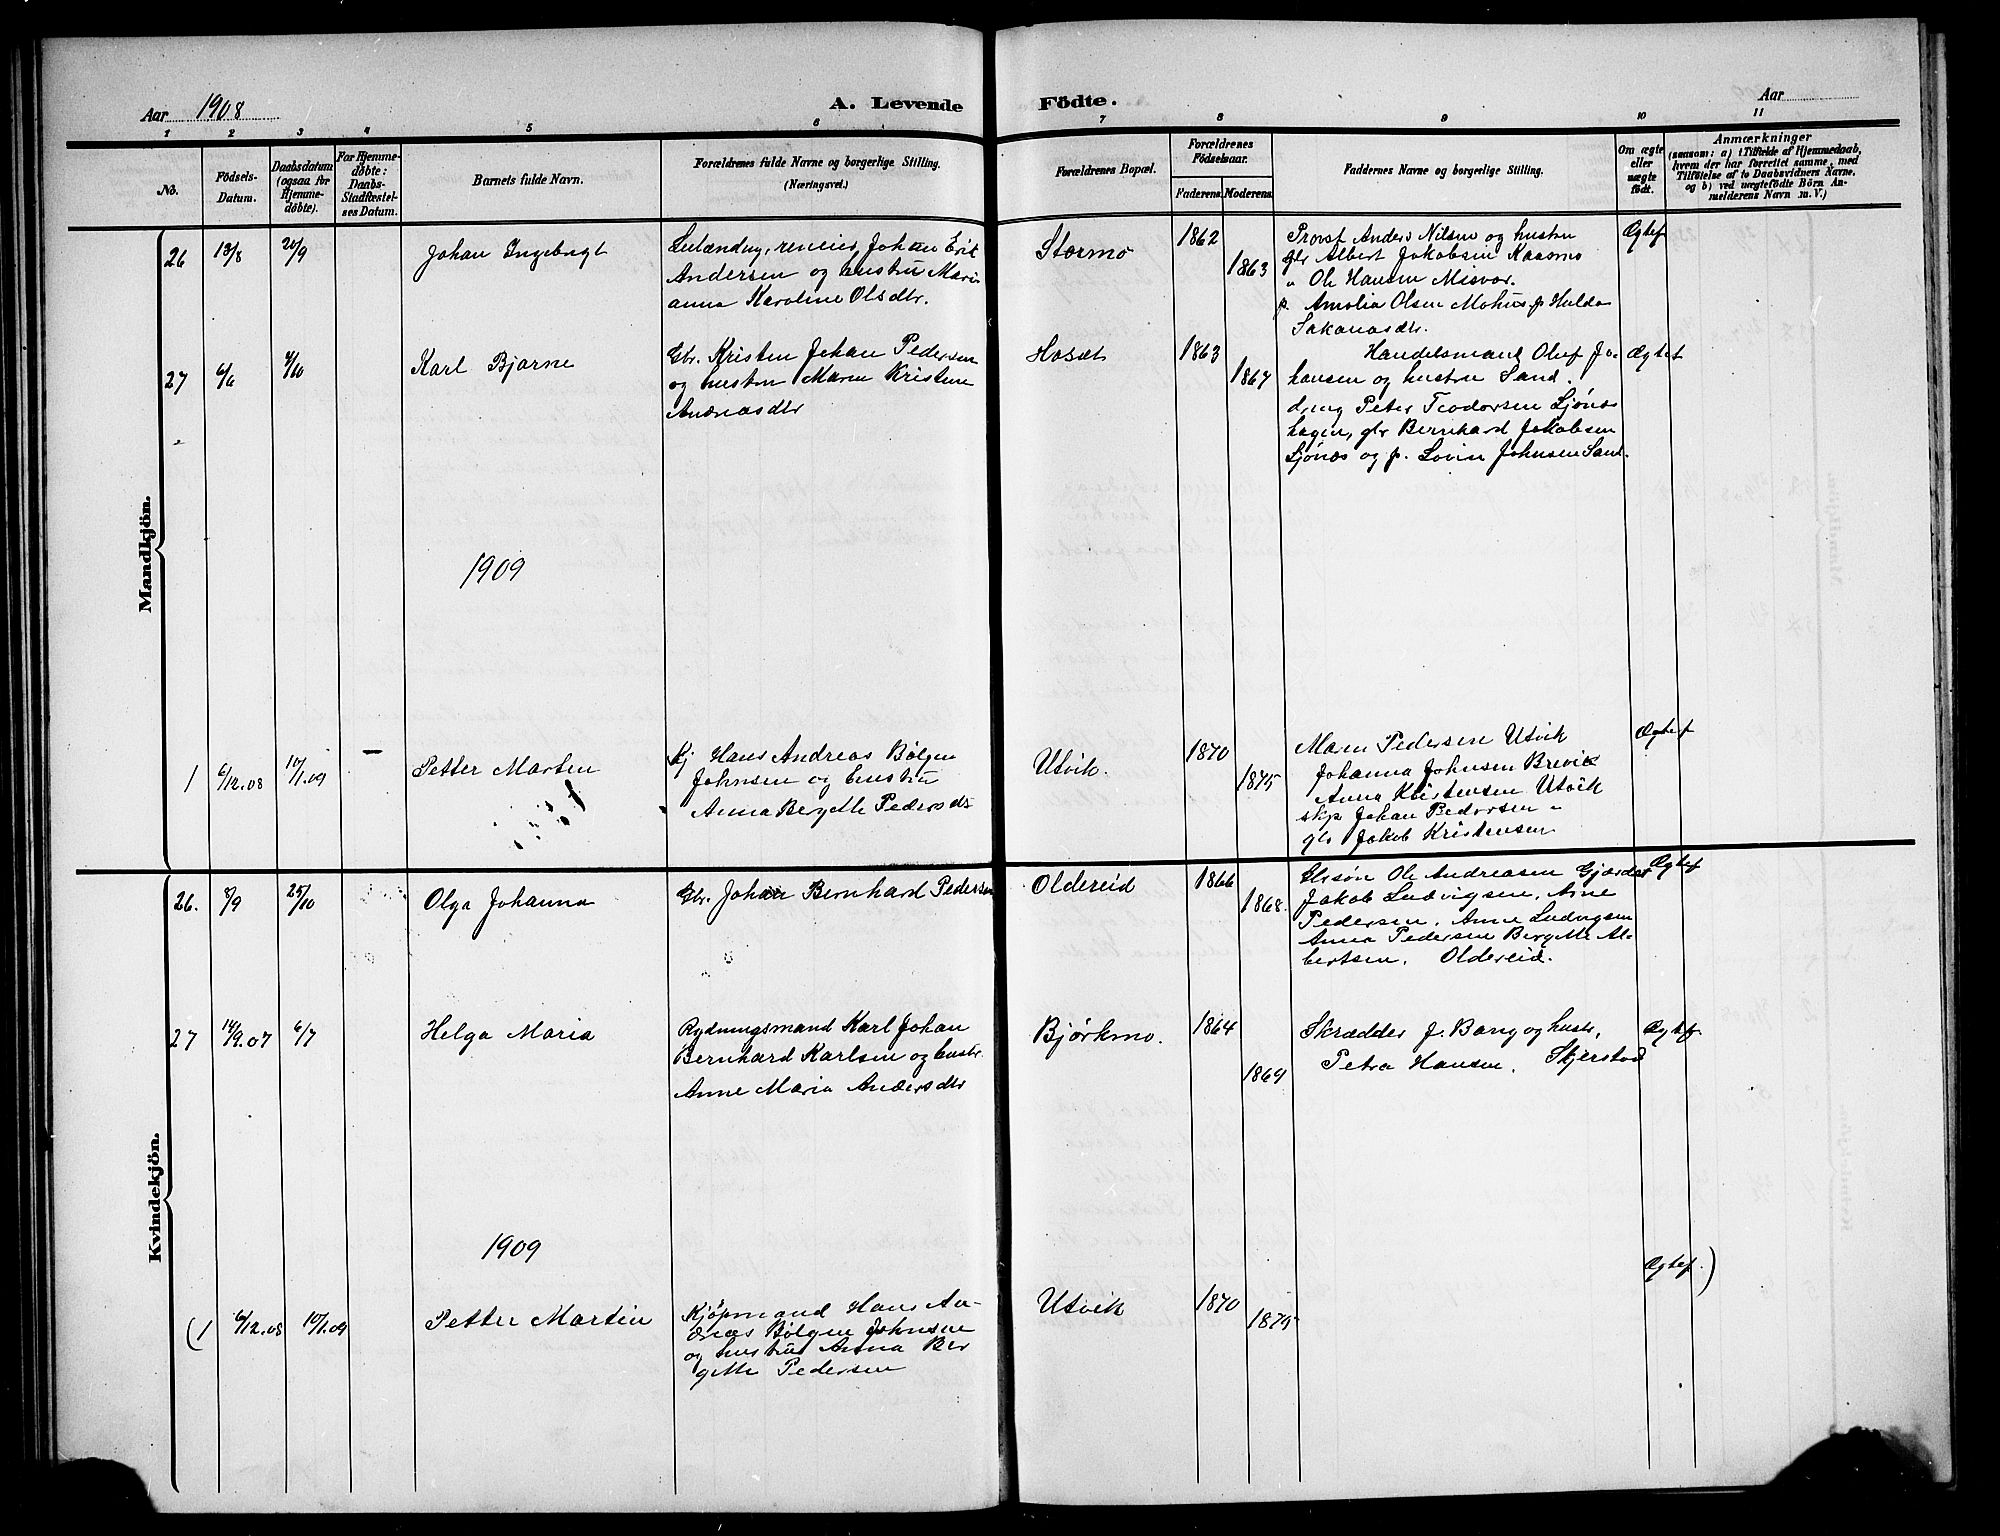 Aar 1908
A. Levende Födte.
Aar
1 2 3 4 5 6 7 8 9 10 11
No.
Födsels-
Datum.
Daabsdatum
(ogsaa for
Hjemme-
döbte).
For Hjemme-
döbte:
Daabs-
Stadfæstel-
ses Datum.
Barnets fulde Navn.
Forældrenes fulde Navne og borgerlige Stilling.
(Næringsvei.)
Forældrenes Bopæl.
Forældrenes
Födselsaar.
Faderens. Moderens.
Faddernes Navne og borgerlige Stilling.
Om ægte
eller
uægte
födt.
Anmærkninger
(saasom: a) i Tilfælde af Hjemmedaab,
hvem der har forrettet samme, med
Tilföielse af to Daabsvidners Navne,
og b) ved uægtefödte Börn An-
melderens Navn m. V.)
Mandkjön.
26 13/8 20/9
Johan Ingebrigt
Johan Erik
Andersen og hustru Mari
anna Karoline Olsdtr.
Stormo
1862
1863
Provst Anders Nilsen og hustru
gbr Albert Jakobsen
" Ole Hansen Misvær.
p. Amalia Olsen Mohus p Hulda
Ægtef
27 6/6 4/10
Karl Bjarne
Gbr. Kristen Johan Pedersen
og hustru Maren Kristine
Andreasdtr
Hosæt
1863
1867
Handelsmand Oluf Jo-
hansen og hustru Sand.
dreng Peter Teodorsen Ljønes
hagen, gbr Bernhard Jakobsen
Ljønes og p. Lovise Johnsen Sand.
Ægtef
1909
1 6/12.08 10/1.09 —
Petter Marten
Kj Hans Andreas Bølgen
Johnsen og hustru
Anna Bergitte Pedersdt
Utvik.
1870
1875
Maren Pedersen Utvik
Johanna Johnsen Brevik
Anna Kristensen Utvik
skp Johan Pedersen "
gbr Jakob Kristensen
Ægtef
Kvindekjön.
26. 8/9 25/10
Olga Johanna
Gbr. Johan Bernhard Pedersen
Oldereid
1866
1868.
Gbrsøn Ole Andreasen
Jakob Ludvigsen, Arne
Pedersen. Anne Ludvigsen
Anna Pedersen Bergitte Al-
bertsen. Oldereid.
Ægtef
27 14/9.07 6/7
Helga Maria
Rydningsmand Karl Johan
Bernhard Karlsen og hustr.
Anne Maria Andersdtr
Bjørkmo.
1864
1869
Skrædder J. Bang og hustr,
Petra Hansen. Skjerstad
Ægtef
1909
(1 6/12.08 10/1.09
Petter Martin
Kjøpmand Hans An-
dreas Bølgen Johnsen
og hustru Anna Ber
gitte Pedersen
Utvik
1870
1875
Ægtef.)